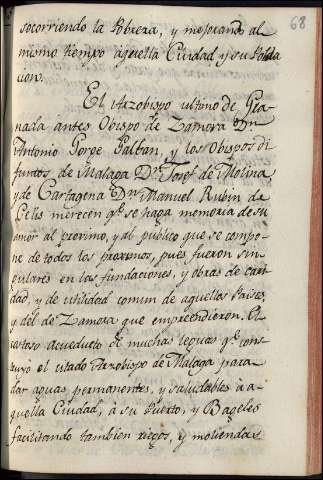 68
socorriendo la Pobreza, y mejorando al
mismo tiempo aquella Ciudad y su Pobla
cion.
El Arzobispo ultimo de Gra-
nada antes Obispo de Zamora Dn
Antonio Jorge Galban, y los Obispos di
funtos de Malaga Dn Josef de Molina
y de Cartagena Dn Manuel Rubin de
Celis merecen qe se haga memoria de su
amor al proximo, y al publico que se compo-
ne de todos los proximos, pues fueron sin-
gulares en las fundaciones, y obras de cari
dad, y de utilidad comun de aquellos Paises,
y del de Zamora que emprendieron. El
costoso acueducto de muchas leguas qe cons-
truyo el citado Arzobispo de Malaga para
dar aguas permanentes, y saludables à a-
quella Ciudad, à su Puerto, y Bageles
facilitando tambien riegos, y moliendas